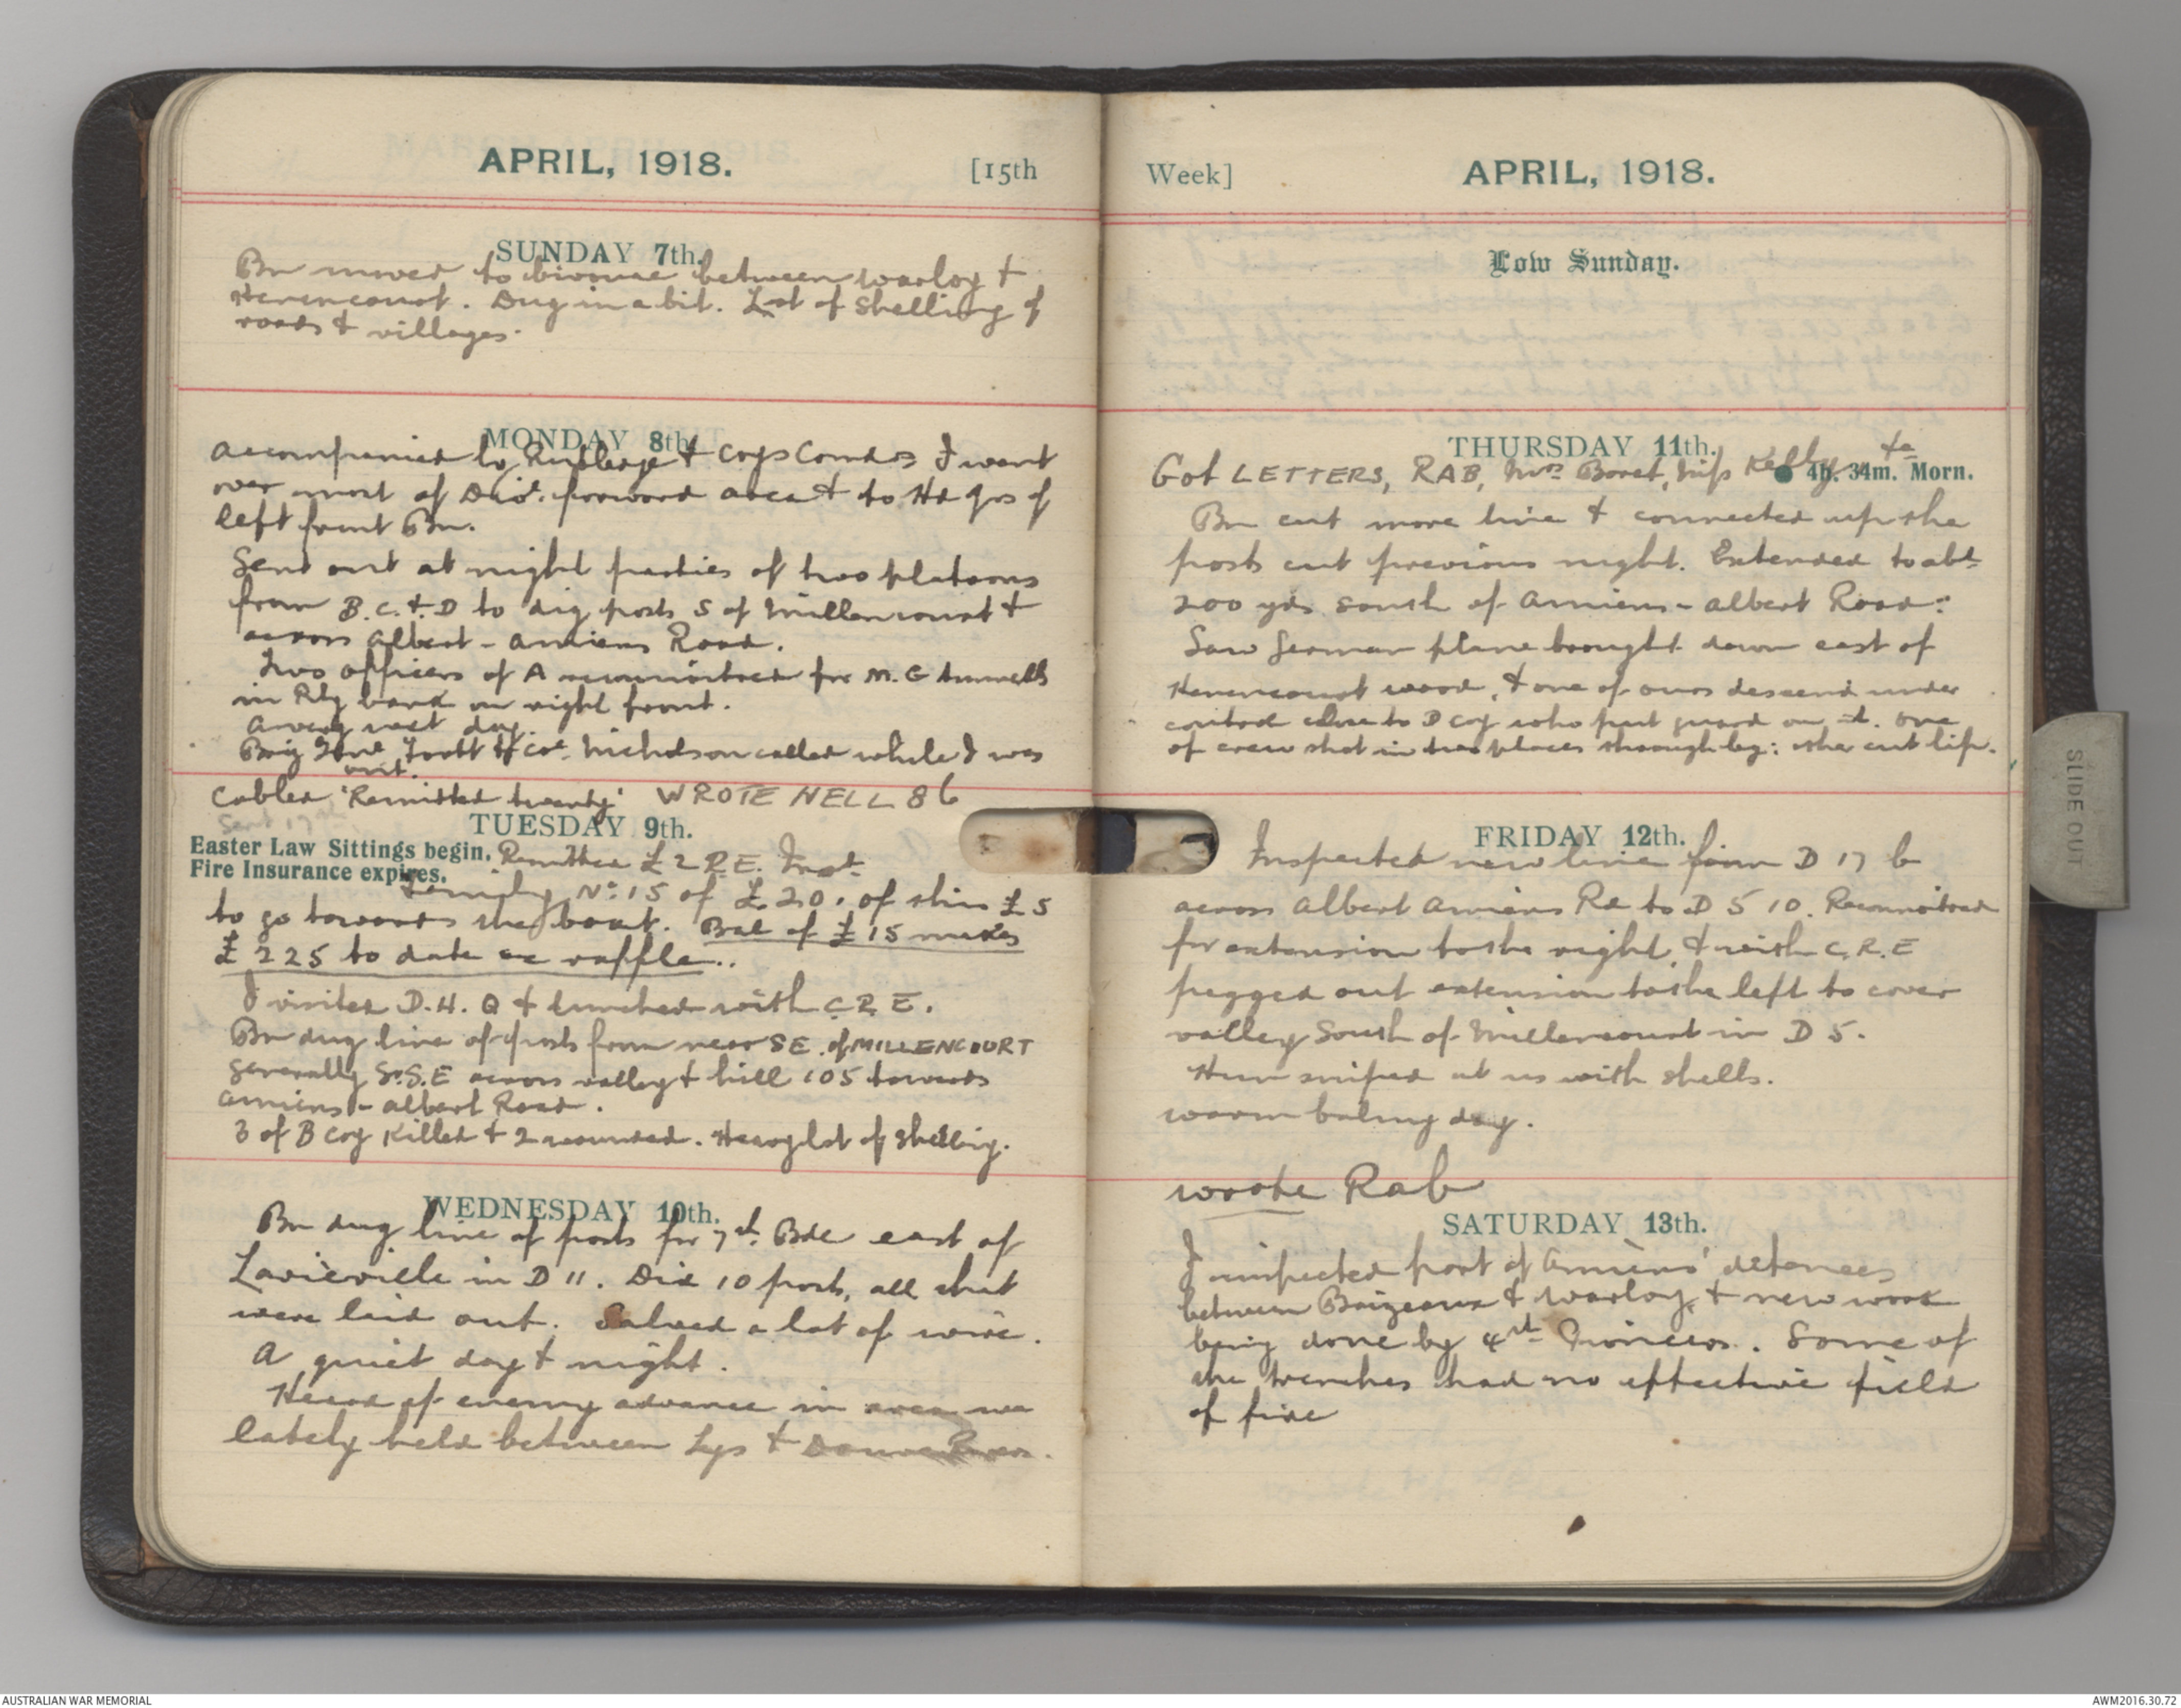 APRIL, 1918.
[15th
SUNDAY 7th.
Bn moved to bivouac between Warloy &
Henencourt. Dug in a bit. Lot of shelling of
roads & villages.
MONDAY 8th.
Accompanied by Rutledge & Coys Comdrs I went
over most of Div. forward area & to Hd Qrs of
left front Bn.
Sent out at night parties of two platoons
from B.C. & D to dig posts S of Millencourt &
across Albert - Amiens Road.
Two officers of A reconnoitred for M.G tunnels
in Rly bank on right front.
A very wet day.
Brig Genl Trott & Col Nicholson called while I was
out.
Cabled 'Remitted twenty' WROTE NELL 86
Sent 17th
TUESDAY 9th.
Easter Law Sittings begin.
Fire Insurance expires.
Remitted £2 R.E. Inst.
Family No. 15 of £20. of this £5
to go towards the boat. Bal of £15 makes
£225 to date raffle..
I visited D.H.Q & lunched with C.R.E.
Bn dug line of posts from near SE. of MILLENCOURT
generally S.S.E across valley & hill 105 towards
Amiens - Albert Road.
3 of B Coy killed & 2 wounded. Heavy lot of shelling.
WEDNESDAY 10th.
Bn dug line of posts for 7th Bde east of
Lavieville in D 11. Did 10 posts, all that
were laid out. Salved a lot of wire.
A quiet day & night.
Heard of enemy advance in area we
lately held between Lys & Douve Rivers.
Week]
APRIL, 1918.
Low Sunday.
THURSDAY 11th.
Got LETTERS, RAB, Mrs Miss Kelly
4h. 34m. Morn.
Bn cut more line & connected up the
posts cut previous night. Extended to abt
200 yds south of Amiens - Albert Road.
Saw German plane brought down east of
Henencourt wood, & one of ours descend under
control close to D Coy who put guard on it. One
of crew shot in two places through leg: other cut lip.
FRIDAY 12th.
Inspected new line from D 17 b
across Albert Amiens Rd to D 5 10. Reconnoitred
for extension to the right, & with C.R.E
pegged out extension to the left to cover
valley South of Millencourt in D 5.
Hun sniped at us with shells.
Warm balmy day.
Wrote Rab
SATURDAY 13th.
I inspected part of Amiens' defences
between Baizieux & Warloy, & new work
being done by 4th Pioneers. Some of
the trenches had no effective field
of fire
SLIDE OUT
AUSTRALIAN WAR MEMORIAL
AWM2016.30.72